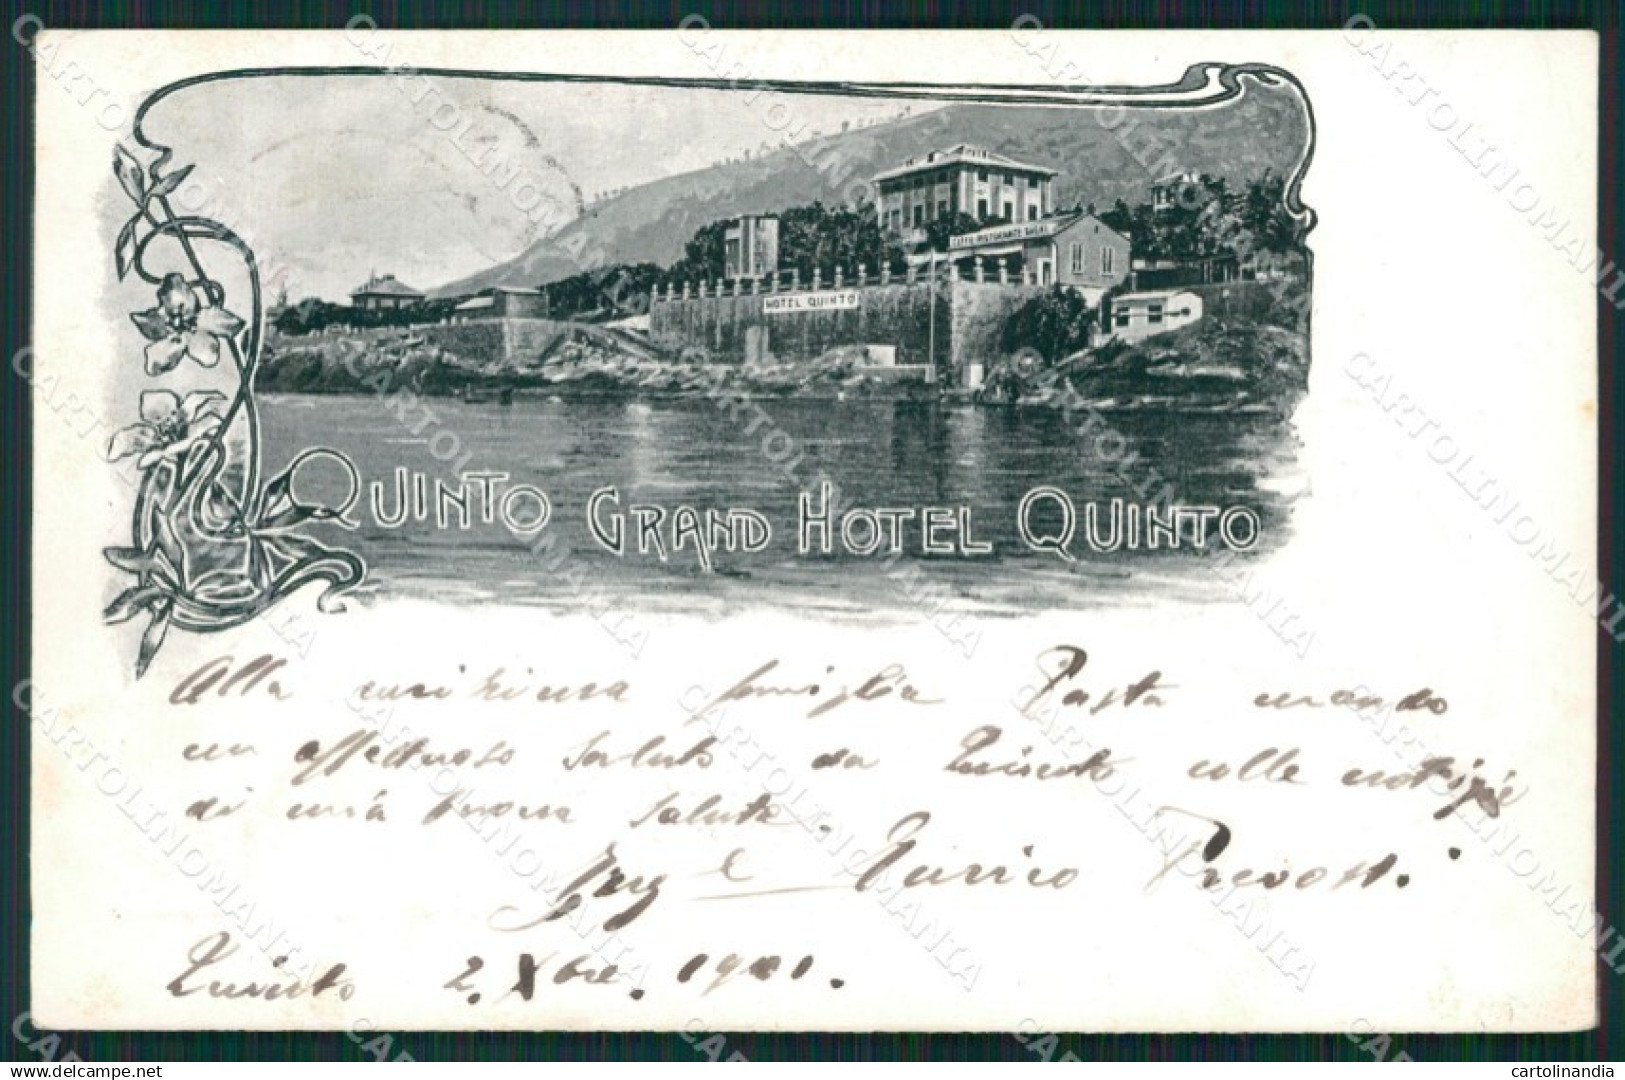 CAFFE RISTORANTE
HOTEL QUINTO
QUINTO GRAND HOTEL QUINTO
Alla famiglia Pasta mando
un affettuoso saluto da Quinto colle notizie
di mia buona salute.
Enrico Prevosti.
Quinto 2. Xbre. 1901.
CARTOLINOMANIA
cartolinandia
delcampe.net